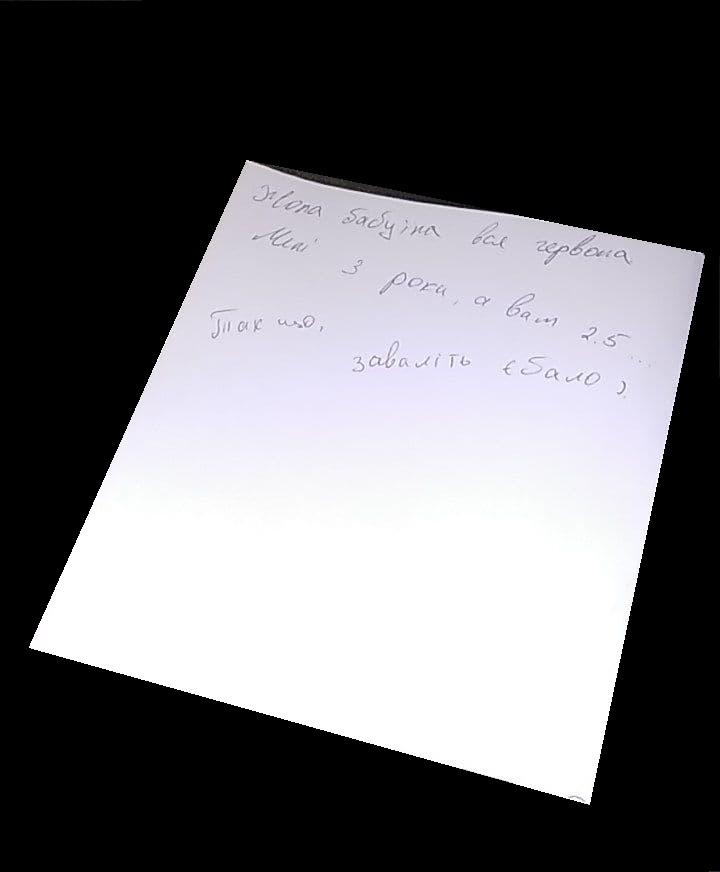 Жопа бабуїна вся червона
Мені 3 роки, а вам 2.5...
Так що,
заваліть єбало )